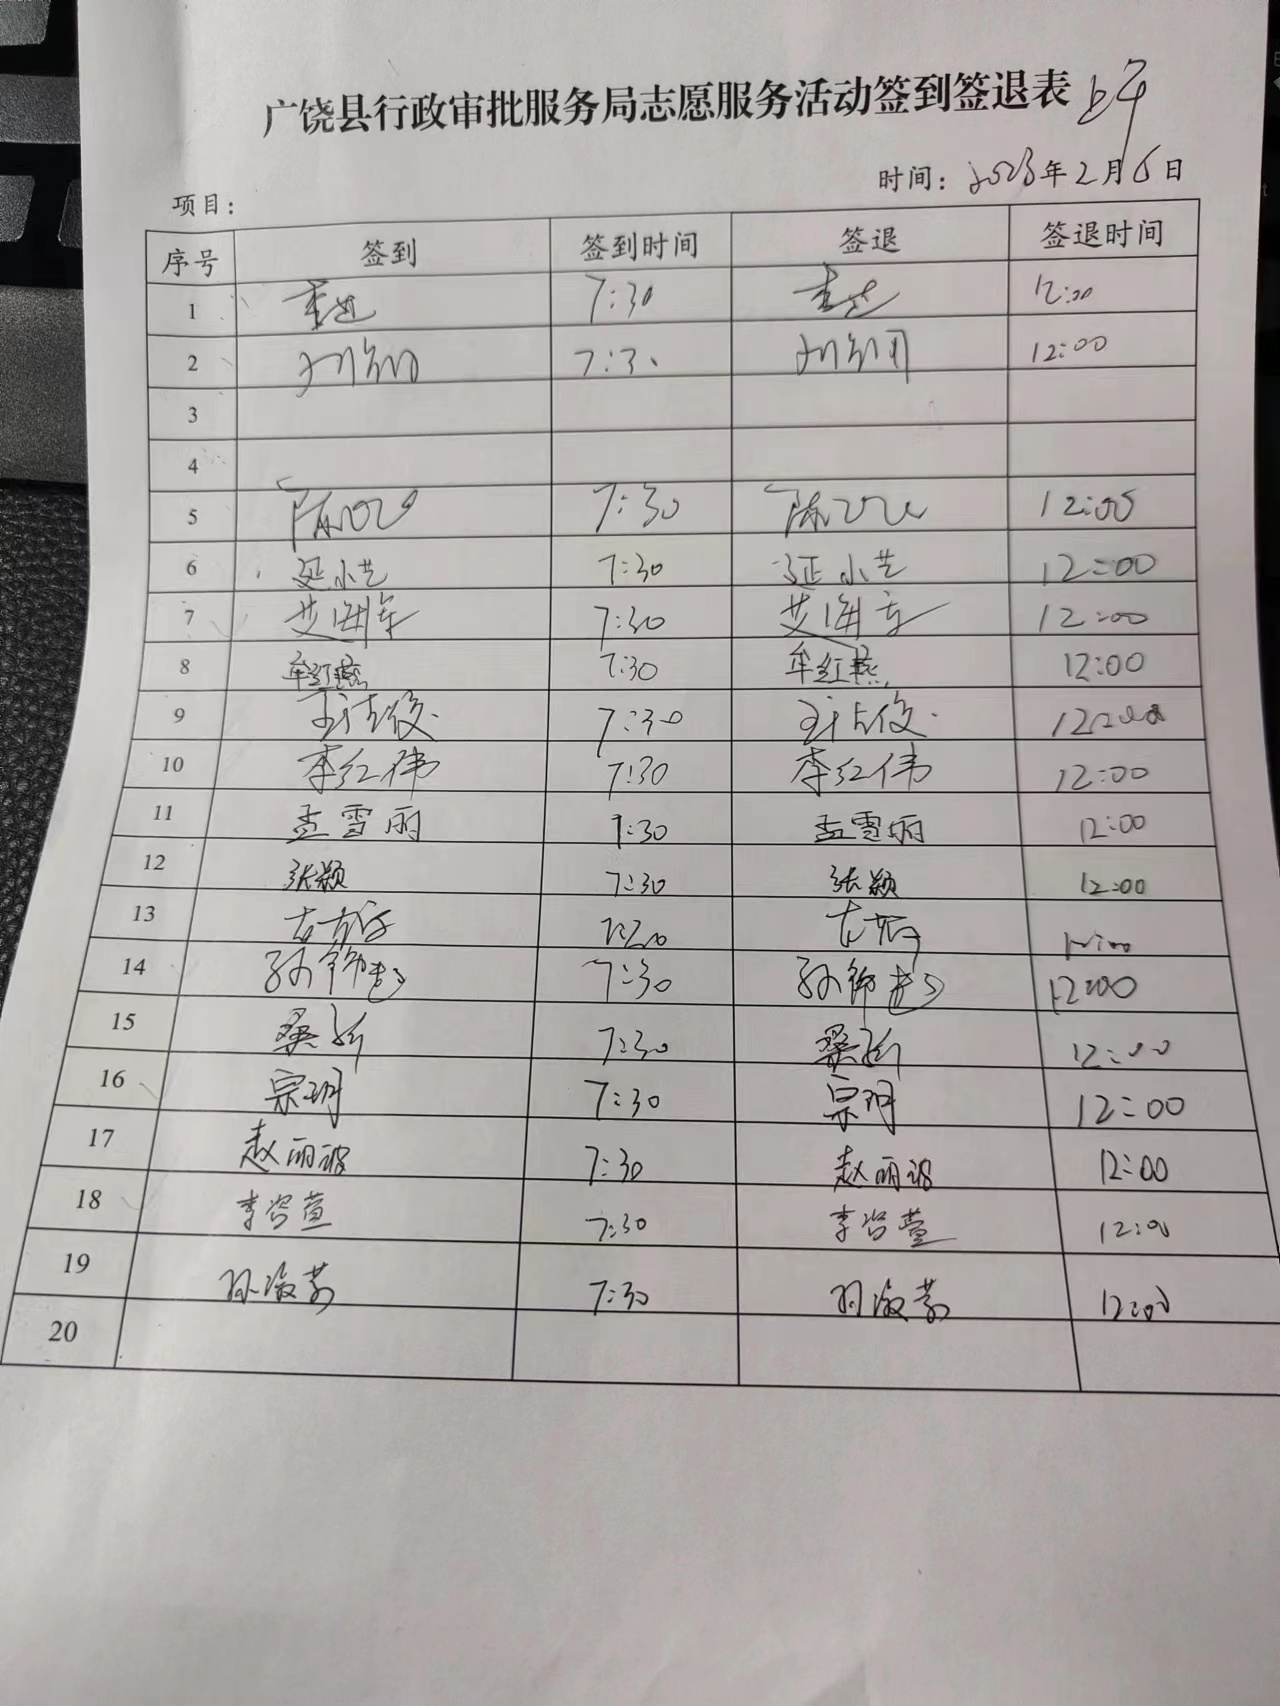 广饶县行政审批服务局志愿服务活动签到签退表 上午
时间：2023年2月6日
项目：
序号 签到 签到时间 签退 签退时间
1 7:30 12:00
2 7:30 12:00
3
4
5 陈 7:30 陈 12:00
6 延小艺 7:30 延小艺 12:00
7 艾海军 7:30 艾海军 12:00
8 牟红燕 7:30 牟红燕 12:00
9 7:30 12:00
10 李红伟 7:30 李红伟 12:00
11 孟雪丽 7:30 孟雪丽 12:00
12 张颖 7:30 张颖 12:00
13
14 孙 7:30 孙 12:00
15 桑 7:30 桑 12:00
16 宗玥 7:30 宗玥 12:00
17 赵丽波 7:30 赵丽波 12:00
18 李咨萱 7:30 李咨萱 12:00
19 7:30 12:00
20